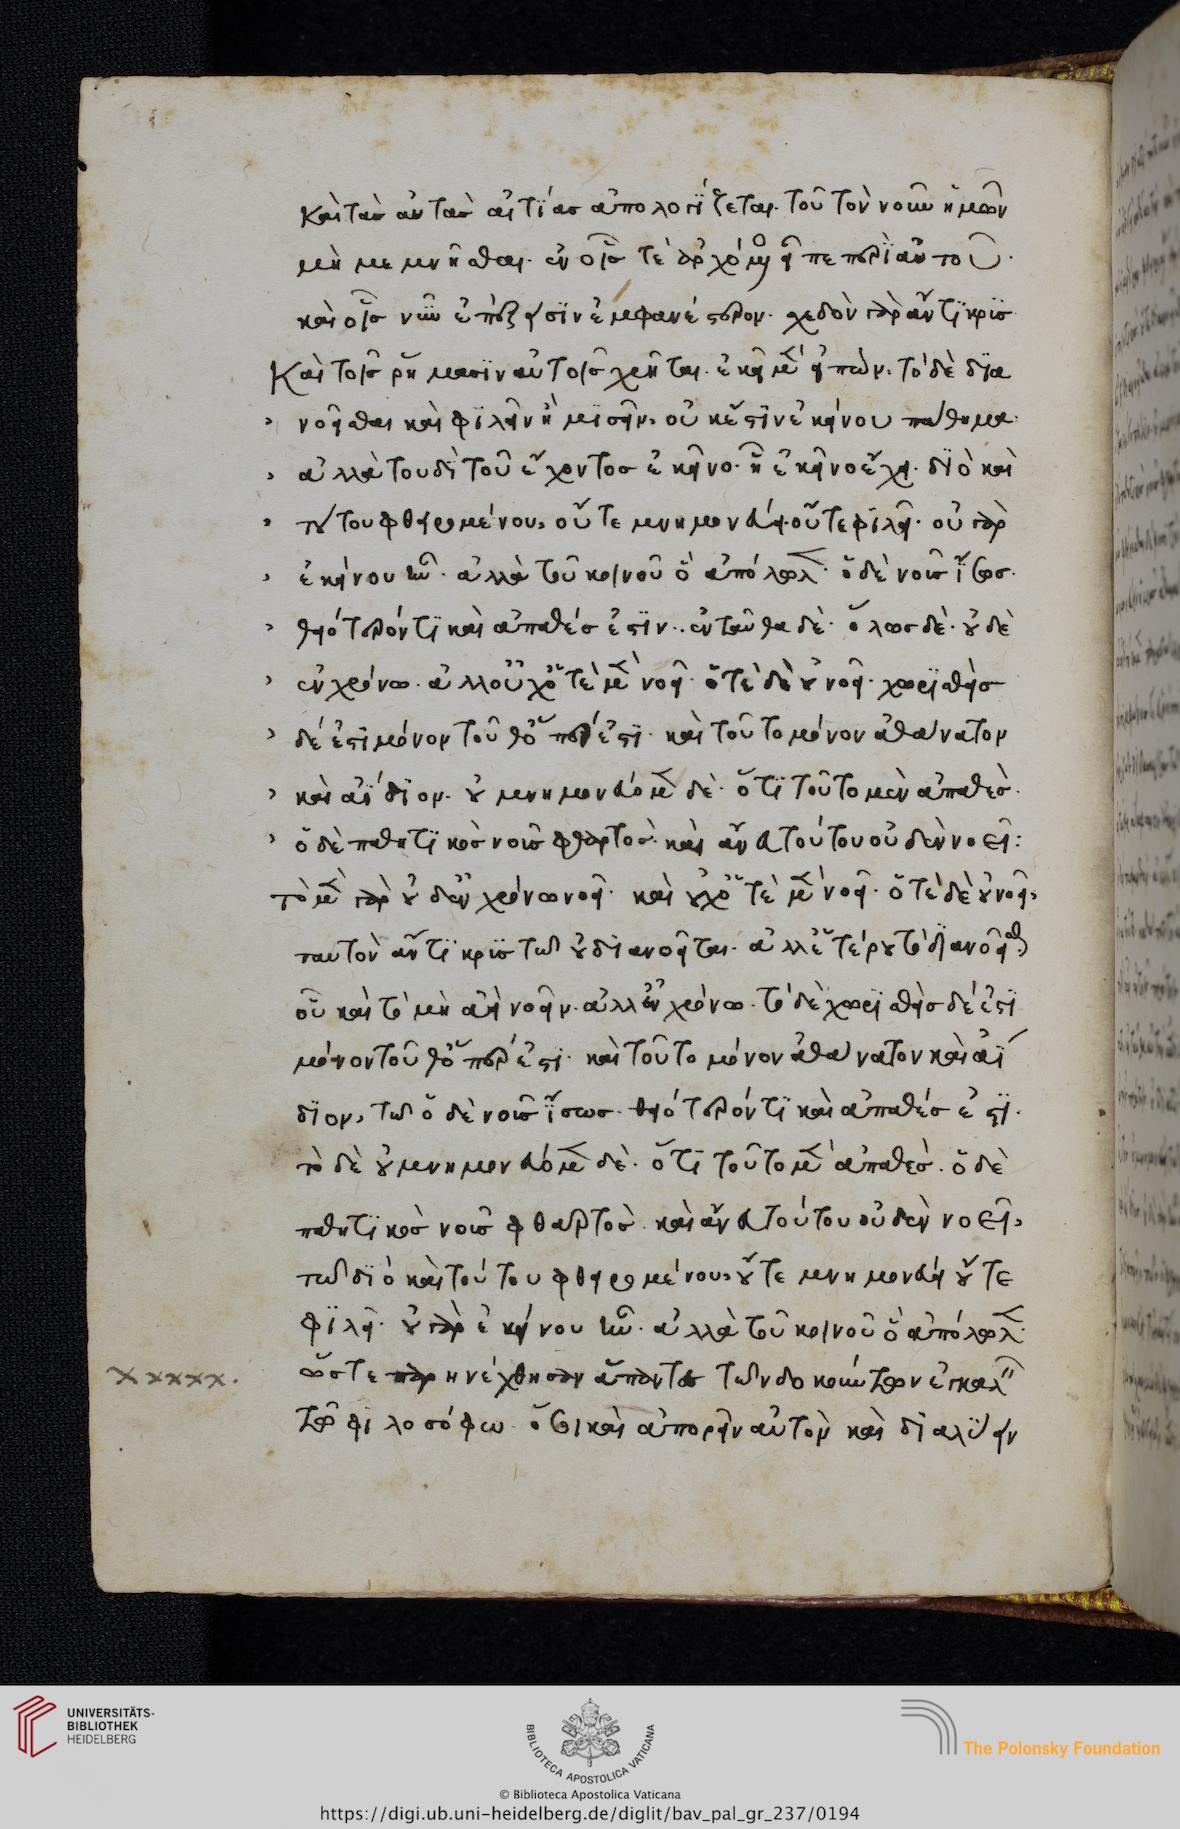 καὶ τὰσ αὐτὰσ αἰτίασ ἀπολογίζεται τοῦ τὸν νοῦν ἡμῶν
μὴ μεμνῆσθαι· ἐν οἷσ τὲ ἀρχόμενος εἶπε περὶ αὐτοῦ·
καὶ οἷσ νῦν ἐπέξεισιν ἐμφανέστερον· σχεδὸν γὰρ ἄντικρϋσ
Καὶ τοῖσ ῥήμασϊν αὐτοῖσ χρῆται· ἐκεῖ μὲν εἰπών· τὸ δὲ δϊα
νοεῖσθαι καὶ φϊλεῖν ἢ μϊσεῖν, οὐκ ἔστϊν ἐκείνου πάθημα·
ἀλλὰ τουδὶ τοῦ ἔχοντοσ ἐκεῖνο· ἧ ἐκεῖνο ἔχει· δϊὸ καὶ
τούτου φθειρομένου, οὔτε μνημονεύει· οὔτε φϊλεῖ· οὐ γὰρ
ἐκείνου ἦν· ἀλλὰ τοῦ κοινοῦ ὃ ἀπόλωλεν· ὁ δὲ νοῦσ ἴσωσ·
θειότερόν τϊ καὶ ἀπαθέσ ἐστϊν· ἐνταῦθα δὲ· ὅλωσ δὲ· οὐδὲ
ἐν χρόνω· ἀλλ' οὐχ ὁτὲ μὲν νοεῖ· ὁτὲ δὲ οὐ νοεῖ· χωρϊσθεὶσ
δέ ἐστϊ μόνον τοῦθ' ὅπερ ἐστϊ· καὶ τοῦτο μόνον ἀθάνατον
καὶ ἀΐδϊον· οὐ μνημονεύομεν δὲ· ὅτϊ τοῦτο μὲν ἀπαθὲσ·
ὁ δὲ παθητϊκὸσ νοῦσ φθαρτὸσ· καὶ ἄνευ τούτου οὐδὲν νοεῖ:
τὸ μὲν γὰρ οὐδ' ἐν χρόνω νοεῖ· καὶ οὐχ ὁτὲ μὲν νοεῖ· ὁτὲ δὲ οὐ νοεῖ,
ταυτὸν ἄντϊκρϋσ τῶ οὐ διανοεῖται· ἀλλ' ἑτέρου τὸ δϊανοεῖσθαι
οὗ καὶ τὸ μὴ ἀεὶ νοεῖν· ἀλλ' ἐν χρόνω· τὸ δὲ χωρϊσθεὶσ δέ ἐστϊ
μόνον τοῦθ' ὅπερ ἐστϊ· καὶ τοῦτο μόνον ἀθάνατον καὶ ἀΐ
δϊον, τῶ ὁ δὲ νοῦσ ἴσωσ· θειότερόν τϊ καὶ ἀπαθέσ ἐστϊ·
τὸ δὲ οὐ μνημονεύομεν δὲ· ὅτϊ τοῦτο μὲν ἀπαθὲσ· ὁ δὲ
παθητϊκὸσ νοῦσ φθαρτὸσ καὶ ἄνευ τούτου οὐδὲν νοεῖ,
τῶ δϊὸ καὶ τούτου φθειρομένου, οὔτε μνημονεύει οὔτε
φϊλεῖ· οὐ γὰρ ἐκείνου ἦν· ἀλλὰ τοῦ κοινοῦ ὃ ἀπόλωλεν·
ὥστε παρηνέχθησαν ἅπαντεσ τῶν δοκούντων ἐγκαλεῖν
τῶ φϊλοσόφω ὅσοι καὶ ἀπορεῖν αὐτὸν καὶ δϊαλύειν
UNIVERSITÄTS-
BIBLIOTHEK
HEIDELBERG
BIBLIOTECA APOSTOLICA VATICANA
The Polonsky Foundation
© Biblioteca Apostolica Vaticana
https://digi.ub.uni-heidelberg.de/diglit/bav_pal_gr_237/0194